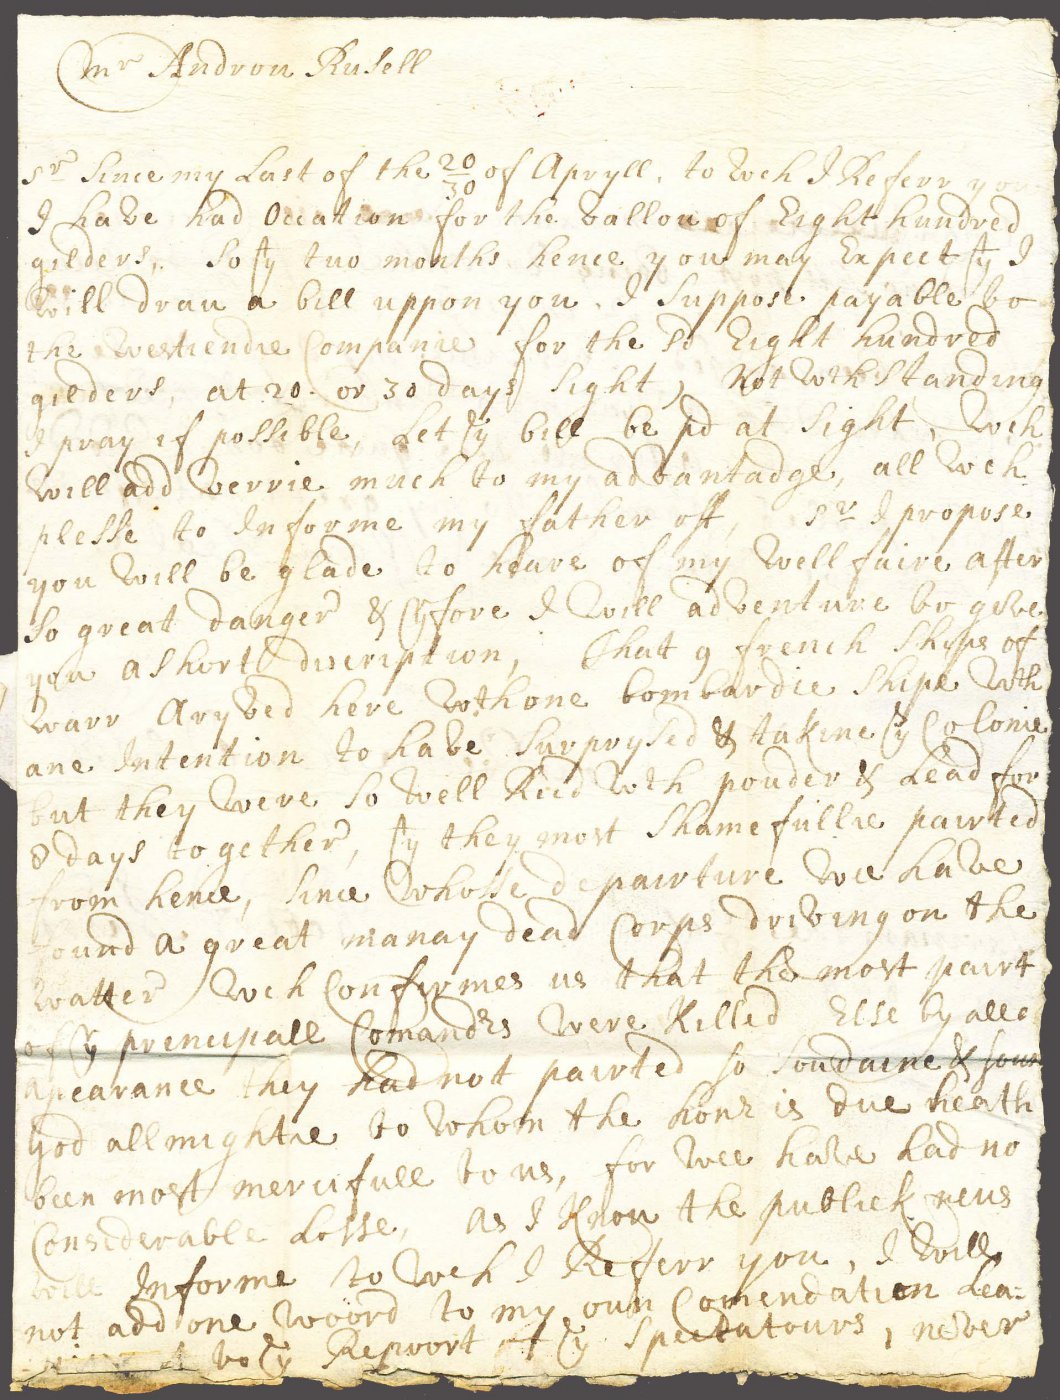 Mr Androu Rusell
Sr Since my Last of the 20/30 of Apryll, to wch I Referr you
I have had Occation for the vallou of Eight hundred
gilders, So yt tuo months hence you may Expect yt I
will drau a bill uppon you, I Suppose payable to
the westiendie Companie for the sd Eight hundred
gilders, at 20 or 30 days Sight, Not wthStanding
I pray if possible, Let ye bill be pd at Sight, wch
will add verrie much to my advantadge, all wch
plesse to Informe my father off, Sr I propose
you will be glade to heare of my wellfaire after
So great danger & yrfore I will adventure to give
you a Short discription, That 9 french Ships of
warr Aryved here wth one bombardie Shipe wth
ane Intention to have Surprysed & takine ye Colonie
but they were So well Ried wth pouder & Lead for
8 days together, yt they most Shamefullie pairted
from hence, Since whosse depairture wee have
found a great manay dead Corps driving on the
watter wch Confirmes us that the most pairt
of ye principall Comandrs were Killed Else by alle
apearance they had not pairted so Soudaine & soun
God allmightie to whom the honr is due heath
been most mercifull to us, for wee have had no
Considerable Losse, As I Knou the publick neus
will Informe to wch I Referr you, I will
not add one woord to my oun Comendation Lea-
it to ye Repoort of ye Spectatours, never